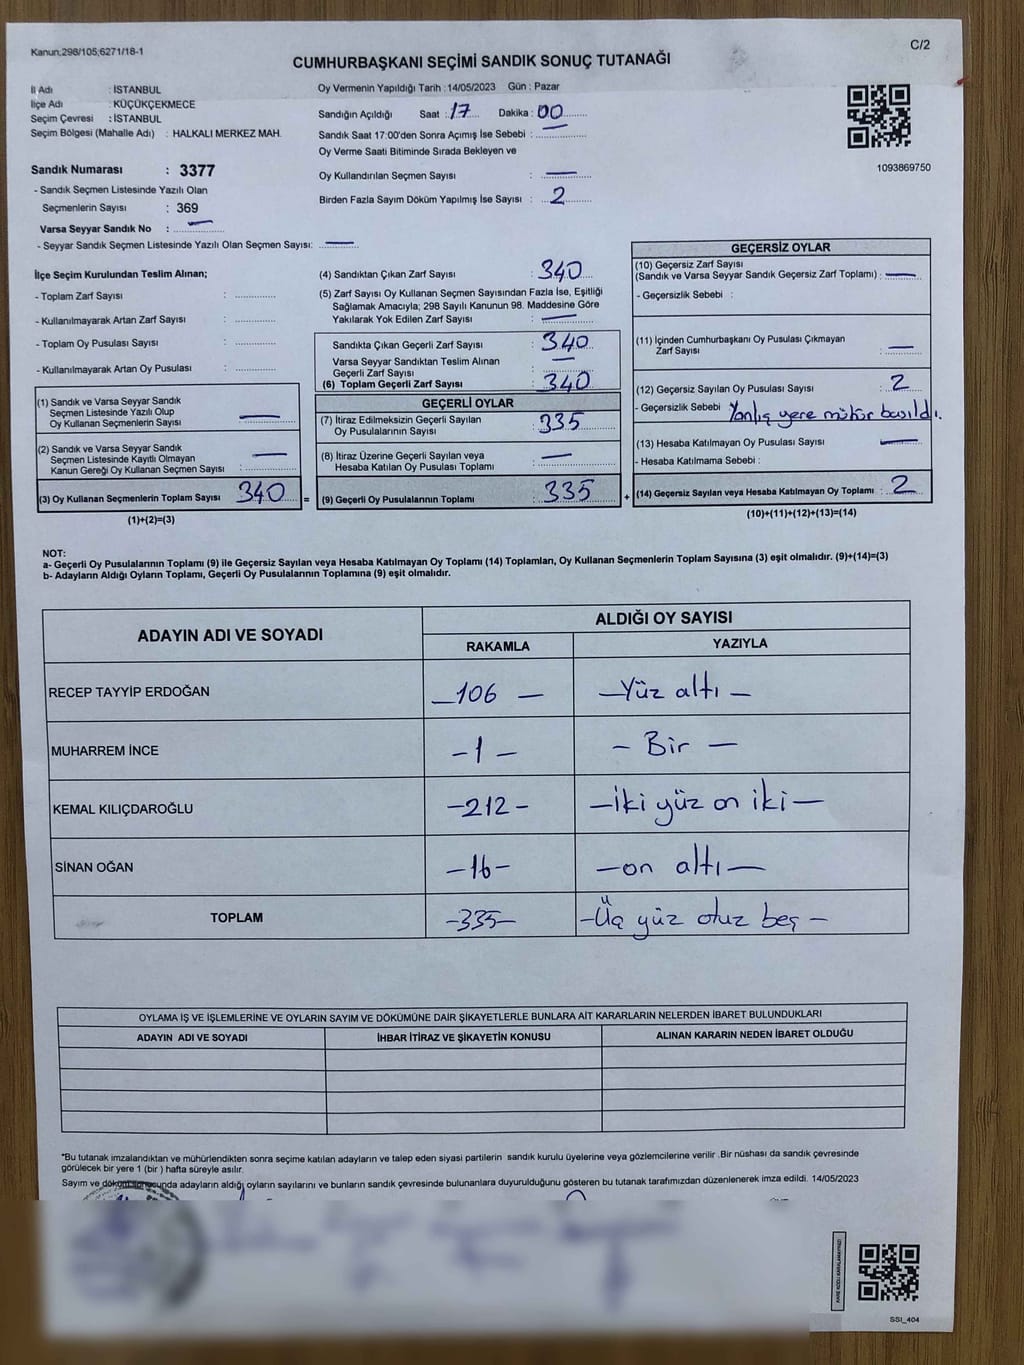 Kanun;298/105;6271/18-1
C/2
CUMHURBAŞKANI SEÇİMİ SANDIK SONUÇ TUTANAĞI
İl Adı : İSTANBUL
İlçe Adı : KÜÇÜKÇEKMECE
Seçim Çevresi : İSTANBUL
Seçim Bölgesi (Mahalle Adı) : HALKALI MERKEZ MAH.
Sandık Numarası : 3377
- Sandık Seçmen Listesinde Yazılı Olan
Seçmenlerin Sayısı : 369
Varsa Seyyar Sandık No : —
- Seyyar Sandık Seçmen Listesinde Yazılı Olan Seçmen Sayısı: —
Oy Vermenin Yapıldığı Tarih : 14/05/2023 Gün : Pazar
Sandığın Açıldığı Saat : 17 Dakika : 00
Sandık Saat 17:00'den Sonra Açımış İse Sebebi : —
Oy Verme Saati Bitiminde Sırada Bekleyen ve
Oy Kullandırılan Seçmen Sayısı : —
Birden Fazla Sayım Döküm Yapılmış İse Sayısı : 2
1093869750
İlçe Seçim Kurulundan Teslim Alınan;
- Toplam Zarf Sayısı :
- Kullanılmayarak Artan Zarf Sayısı :
- Toplam Oy Pusulası Sayısı :
- Kullanılmayarak Artan Oy Pusulası :
(1) Sandık ve Varsa Seyyar Sandık
Seçmen Listesinde Yazılı Olup
Oy Kullanan Seçmenlerin Sayısı : —
(2) Sandık ve Varsa Seyyar Sandık
Seçmen Listesinde Kayıtlı Olmayan
Kanun Gereği Oy Kullanan Seçmen Sayısı : —
(3) Oy Kullanan Seçmenlerin Toplam Sayısı 340 =
(1)+(2)=(3)
(4) Sandıktan Çıkan Zarf Sayısı : 340
(5) Zarf Sayısı Oy Kullanan Seçmen Sayısından Fazla İse, Eşitliği
Sağlamak Amacıyla; 298 Sayılı Kanunun 98. Maddesine Göre
Yakılarak Yok Edilen Zarf Sayısı : —
Sandıkta Çıkan Geçerli Zarf Sayısı : 340
Varsa Seyyar Sandıktan Teslim Alınan
Geçerli Zarf Sayısı : —
(6) Toplam Geçerli Zarf Sayısı : 340
GEÇERLİ OYLAR
(7) İtiraz Edilmeksizin Geçerli Sayılan
Oy Pusulalarının Sayısı : 335
(8) İtiraz Üzerine Geçerli Sayılan veya
Hesaba Katılan Oy Pusulası Toplamı : —
(9) Geçerli Oy Pusulalarının Toplamı : 335 +
GEÇERSİZ OYLAR
(10) Geçersiz Zarf Sayısı
(Sandık ve Varsa Seyyar Sandık Geçersiz Zarf Toplamı) : —
- Geçersizlik Sebebi :
(11) İçinden Cumhurbaşkanı Oy Pusulası Çıkmayan
Zarf Sayısı : —
(12) Geçersiz Sayılan Oy Pusulası Sayısı : 2
- Geçersizlik Sebebi Yanlış yere mühür basıldı.
(13) Hesaba Katılmayan Oy Pusulası Sayısı : —
- Hesaba Katılmama Sebebi :
(14) Geçersiz Sayılan veya Hesaba Katılmayan Oy Toplamı : 2
(10)+(11)+(12)+(13)=(14)
NOT:
a- Geçerli Oy Pusulalarının Toplamı (9) ile Geçersiz Sayılan veya Hesaba Katılmayan Oy Toplamı (14) Toplamları, Oy Kullanan Seçmenlerin Toplam Sayısına (3) eşit olmalıdır. (9)+(14)=(3)
b- Adayların Aldığı Oyların Toplamı, Geçerli Oy Pusulalarının Toplamına (9) eşit olmalıdır.
ADAYIN ADI VE SOYADI ALDIĞI OY SAYISI
RAKAMLA YAZIYLA
RECEP TAYYİP ERDOĞAN —106— —Yüz altı—
MUHARREM İNCE —1— —Bir—
KEMAL KILIÇDAROĞLU —212— —İki yüz on iki—
SİNAN OĞAN —16— —on altı—
TOPLAM —335— —Üç yüz otuz beş—
OYLAMA İŞ VE İŞLEMLERİNE VE OYLARIN SAYIM VE DÖKÜMÜNE DAİR ŞİKAYETLERLE BUNLARA AİT KARARLARIN NELERDEN İBARET BULUNDUKLARI
ADAYIN ADI VE SOYADI İHBAR İTİRAZ VE ŞİKAYETİN KONUSU ALINAN KARARIN NEDEN İBARET OLDUĞU
*Bu tutanak imzalandıktan ve mühürlendikten sonra seçime katılan adayların ve talep eden siyasi partilerin sandık kurulu üyelerine veya gözlemcilerine verilir .Bir nüshası da sandık çevresinde
görülecek bir yere 1 (bir ) hafta süreyle asılır.
Sayım ve dökümü sonucunda adayların aldığı oyların sayılarını ve bunların sandık çevresinde bulunanlara duyurulduğunu gösteren bu tutanak tarafımızdan düzenlenerek imza edildi. 14/05/2023
KARE KODU KARALAMAYINIZ!
SSI_404